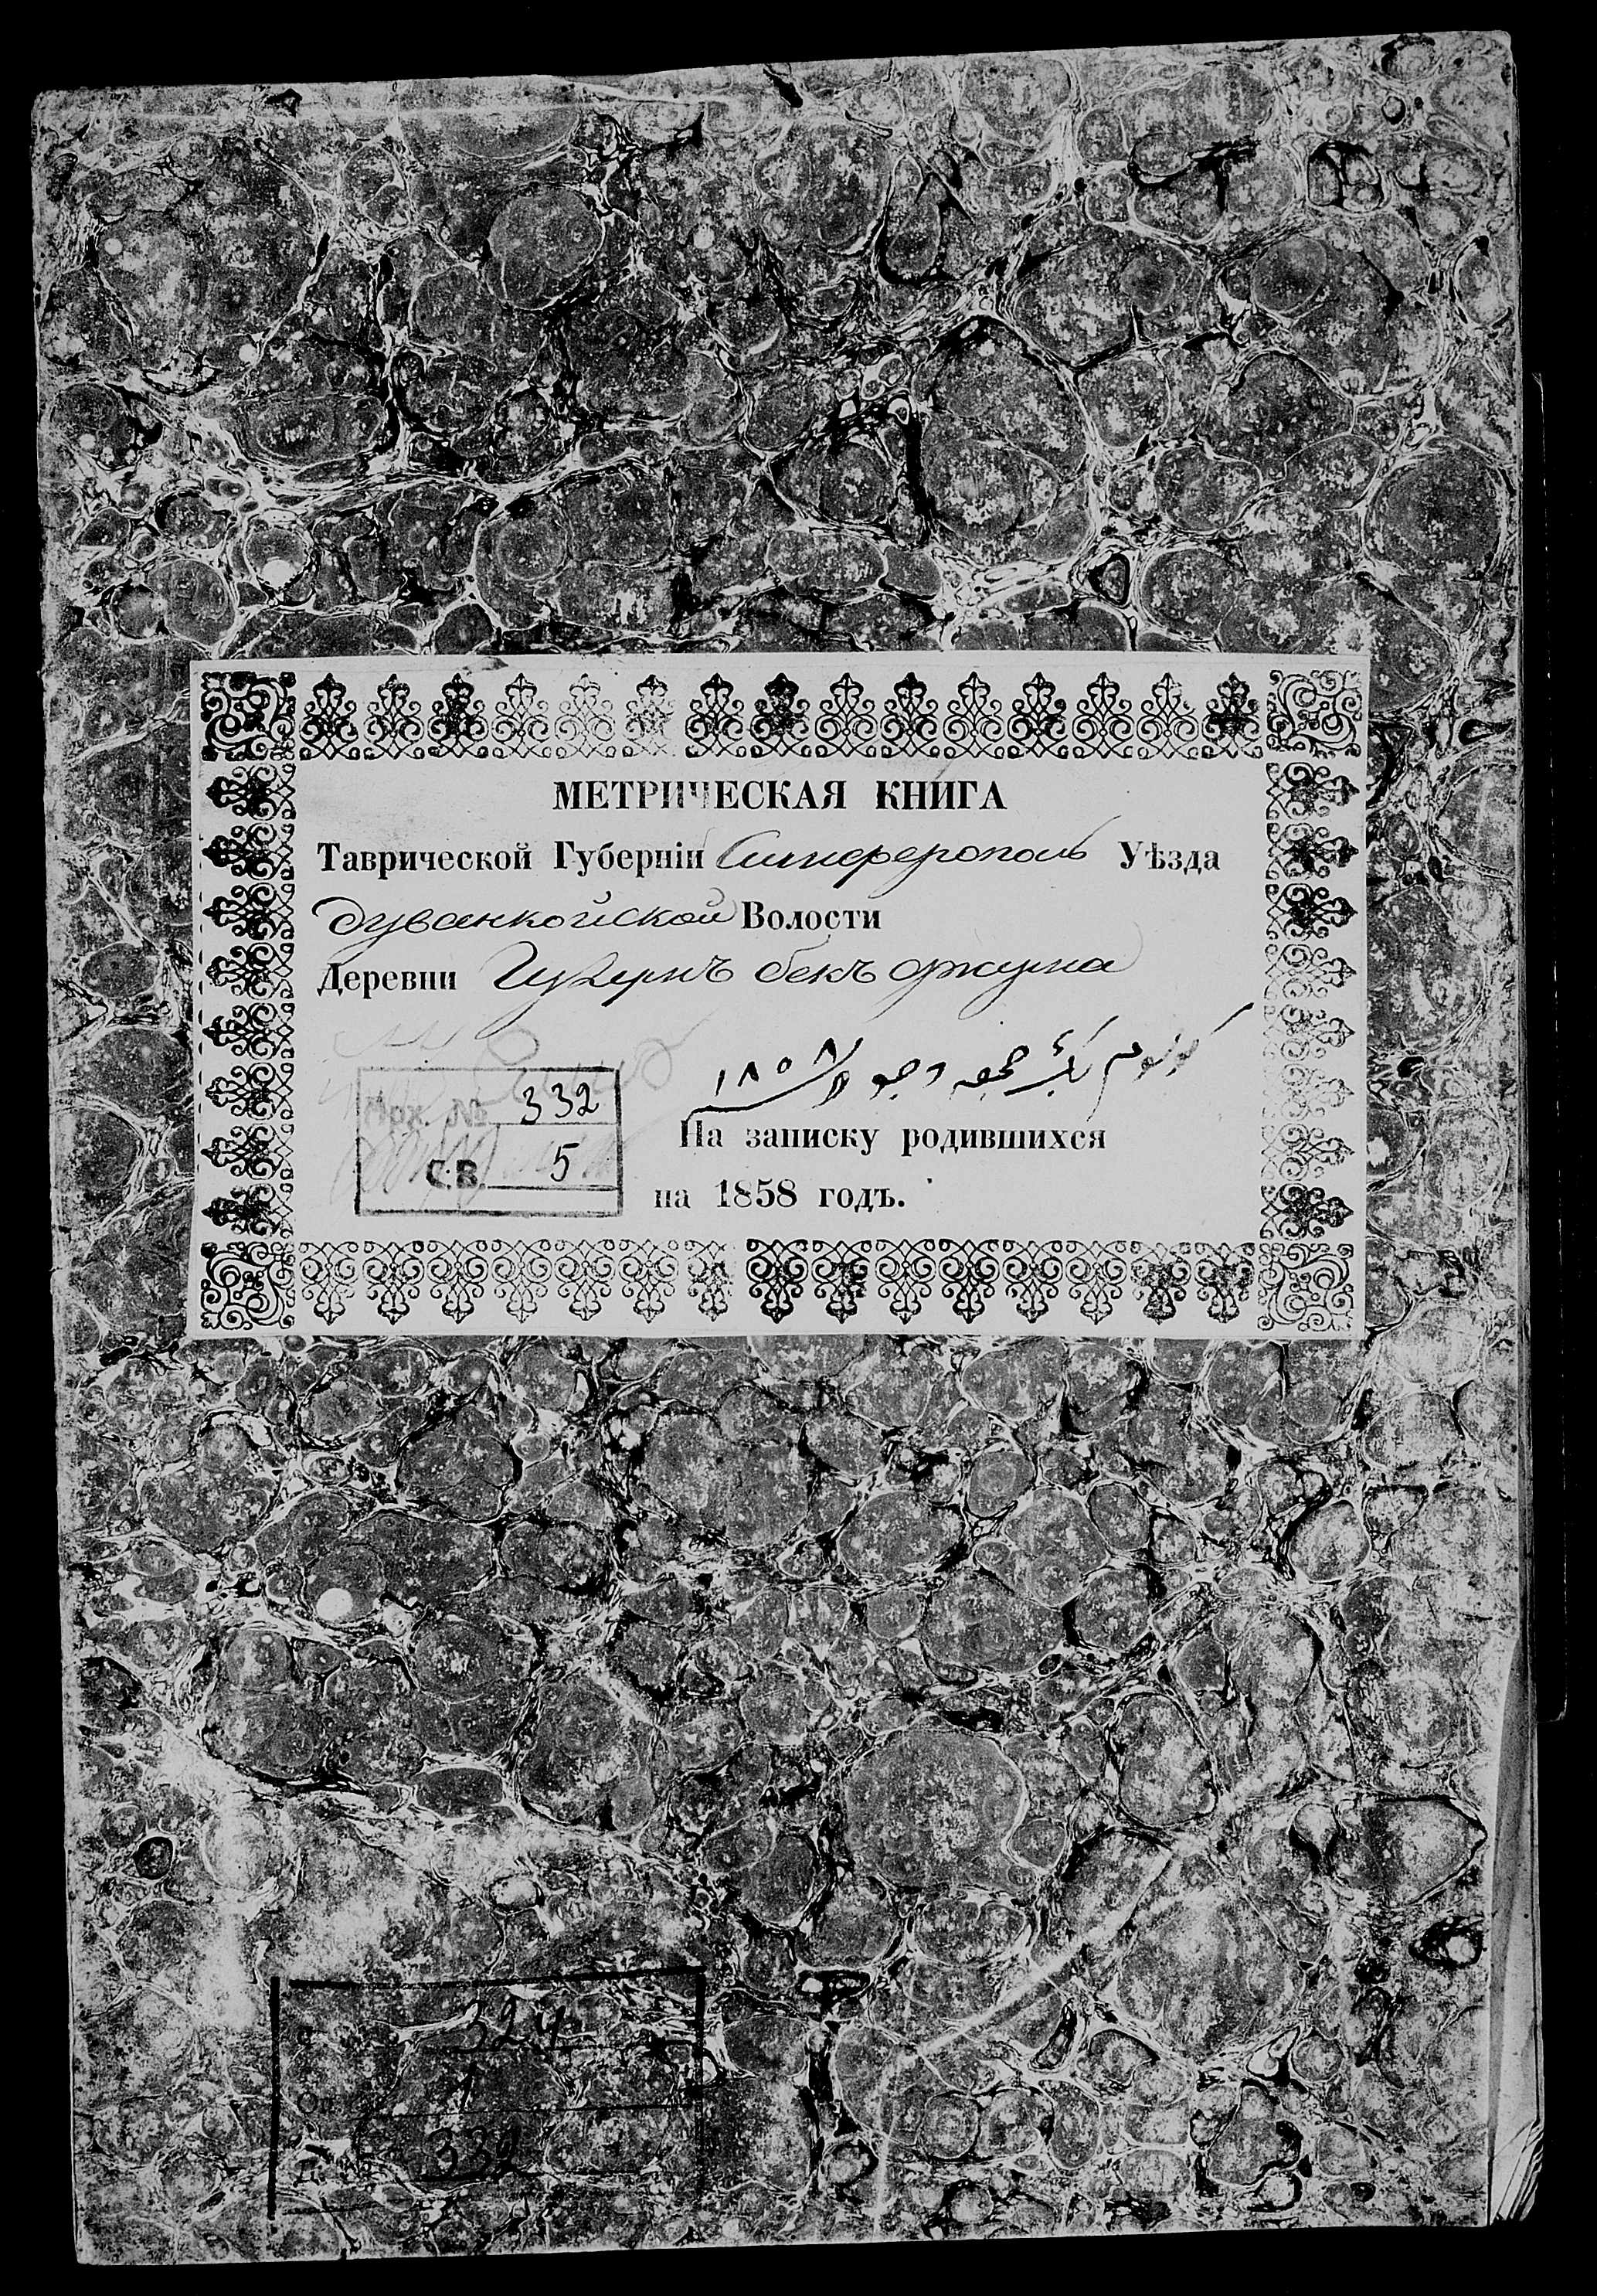 МЕТРИЧЕСКАЯ КНИГА
Таврической Губерніи Симферополь Уѣзда
Дуванкойской Волости
Деревни бекъ джума
١٨٥٨
Арх. № 332
На записку родившихся
СВ. 5
на 1858 годъ.
324
Оп. 1
332